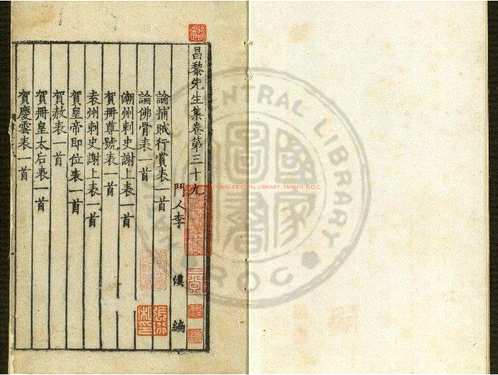 昌黎先生集卷第三十九
門人李 漢 編
論捕賊行賞表一首
論佛骨表一首
潮州刺史謝上表一首
賀冊尊號表一首
袁州刺史謝上表一首
賀皇帝即位表一首
賀赦表一首
賀冊皇太后表一首
賀慶雲表一首
NATIONAL CENTRAL LIBRARY, TAIWAN, R.O.C.